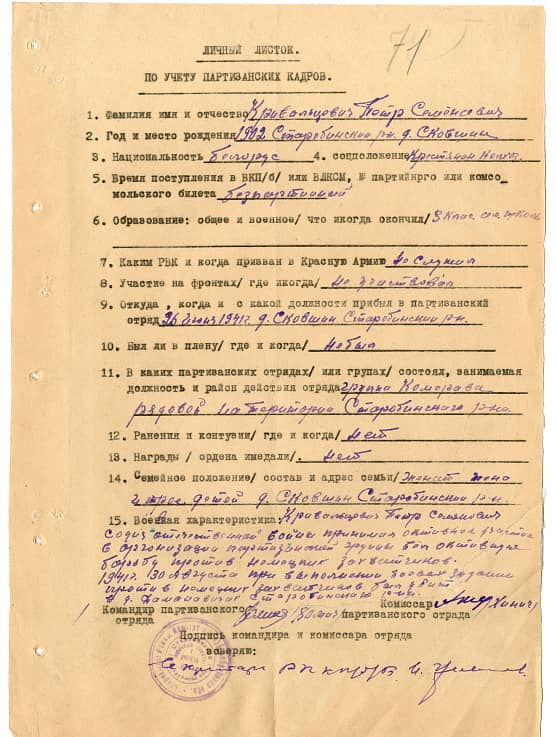 71
ЛИЧНЫЙ ЛИСТОК.
ПО УЧЕТУ ПАРТИЗАНСКИХ КАДРОВ.
1. Фамилия имя и отчество Кривальцевич Петр Семенович
2. Год и место рождения 1902 Старобинский р-н. д. Сковшин
3. Национальность белорус 4. соцположение Крестянин
5. Время поступления в ВКП/б/ или ВЛКСМ, № партийнрго или комсо
мольского билета безпартийный
6. Образование: общее и военное/ что икогда окончил/ 3 клас.
7. Каким РВК и когда призван в Красную Армию Не служил
8. Участие на фронтах/ где икогда/ Не участвовал
9. Откуда , когда и с какой должности прибыл в партизанский
отряд 26 июня 1941г. д. Сковшин Старобинский р-н.
10. Был ли в плену/ где и когда/ Небыл
11. В каких партизанских отрядах/ или групах/ состоял, занимаемая
должность и район действия отряда группа Комарава
рядовой на територии Старобинского р-на
12. Ранения и контузии/ где и когда/ Нет
13. Награды / ордена имедали/. Нет
14. Семейное положение/ состав и адрес семьи/ женат жена
и трое детей д. Сковшин Старобинский р-н.
15. Военная характеристика: Кривальцевич Петр Семенович
отечественной войны принимал активное участие
в организации партизанской группы вел активную
борьбу против немецких захватчиков.
1941г. 30 Августа при выполнении боевой задании
против немецких захватчиков был убит
в д. Старобинского р-на.
Командир партизанского Комиссар
отряда партизанского отрада
Подпись командира и комиссара отряда
зоверяю:
Секретарь РК КП/б/Б